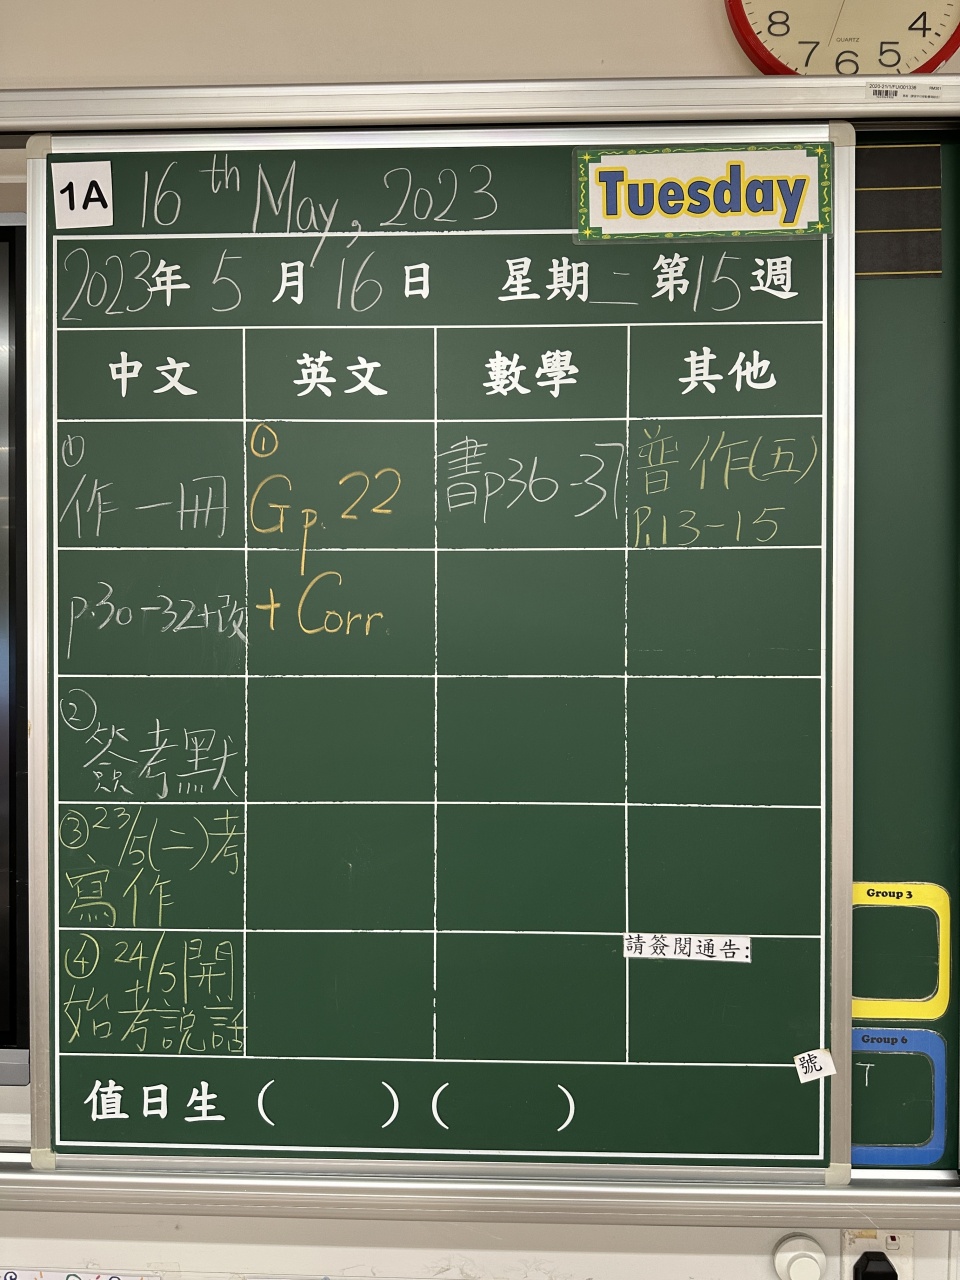 8 7 6 5 4
QUARTZ
1A 16th May, 2023 Tuesday
2023年5月16日 星期二 第15週
中文 英文 數學 其他
① 作一冊
p.30-32+改
② 簽考默
③ 23/5(二)考
寫作
④ 24/5開
始考說話
① Gp.22
+ Corr
書p36-37
普作(五)
P.13-15
請簽閱通告:
號
值日生 ( ) ( )
Group 3
Group 6
T